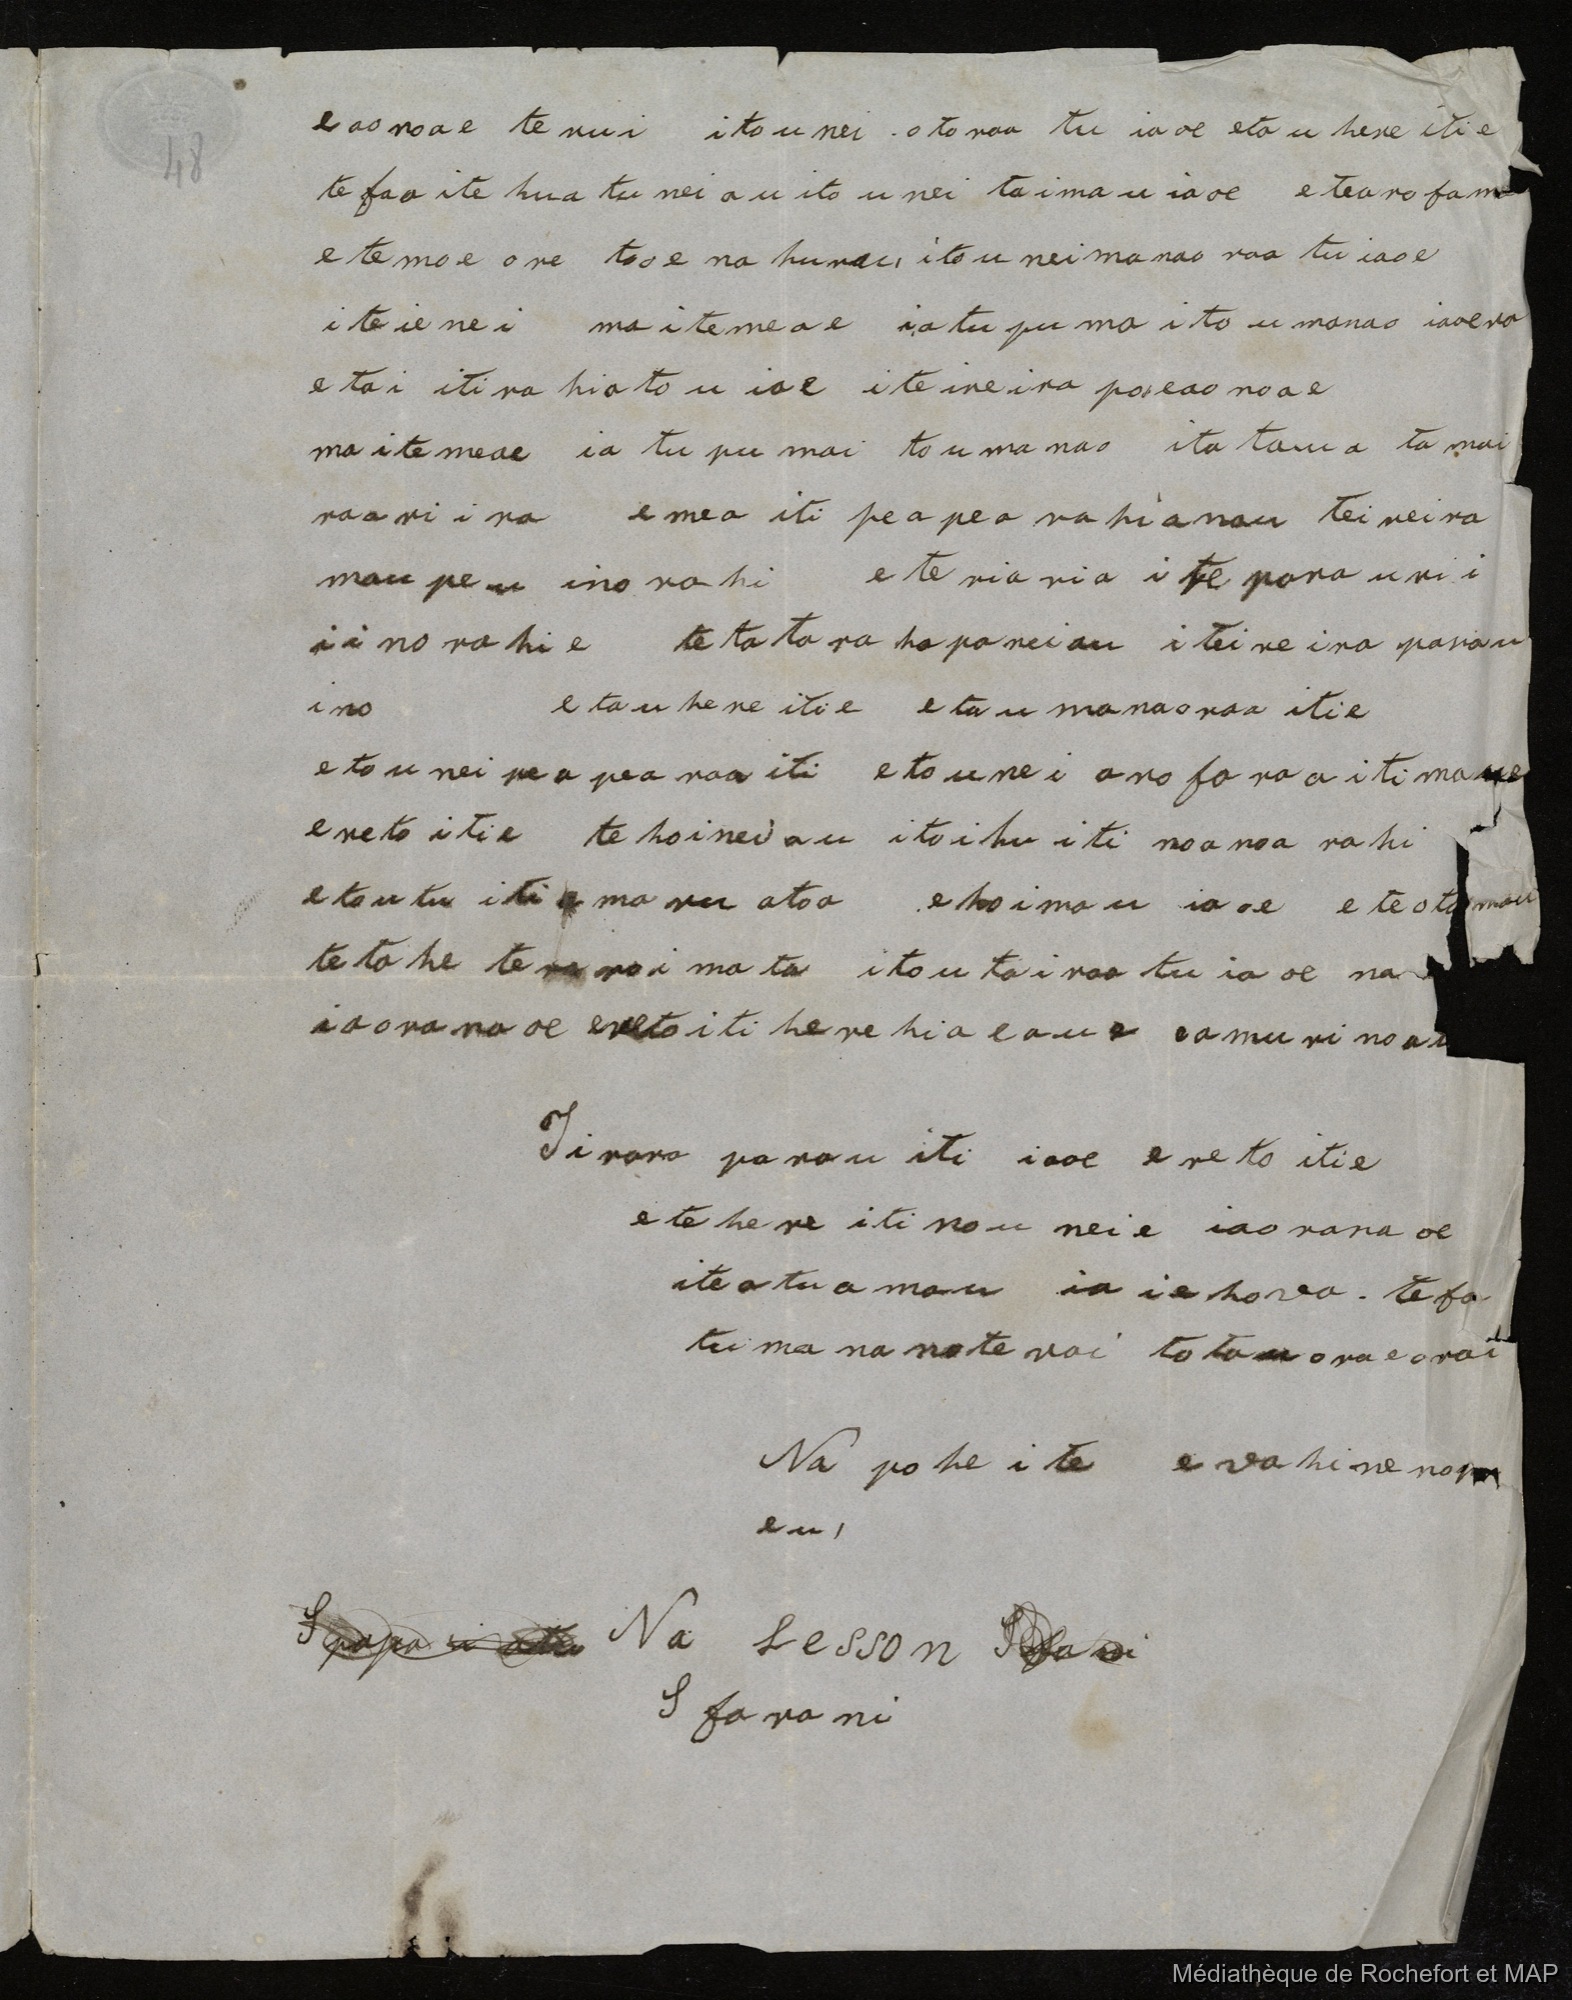 48
eaonoae te rui itounei otoraa tu iaoe etau here itie
te faaite hua tu nei au ito u nei taimau iaoe e tearofa ma
e te moe ore tooe na hurau, ito u nei manao raa tu iaoe
i te ie nei ma ite meae ia tu pu ma ito u manao iaoera
e tai iti ra hia to u iae i te ireira poieao noae
ma ite meae ia tu pu mai to u manao ita taua ta mai
raa rii ra e mea iti pea pea rahi anau tei reira
mau peu ino rahi e te riaria i te parau rii
ii no rahi e te ta ta ra hapa neiau i tei reira parau
ino e tau here itie e tau manaoraa itie
e to u nei pea pea raa iti e to u nei arofa raa iti maue
e reto itie te hoi nei au i to ihu iti noanoa rahi
e to utu iti e maru atoa e hoi mau iaoe e te ata mau
te tahe te ra roi mata ito u tai raa tu iaoe na
iaorana oe e reto iti here hia e aue eamuri noa
Tirara parau iti iaoe e reto itie
e te here iti no u nei e iaorana oe
ite atua mau ia iehova. te fa
tu mana no te rai to tau ora e orai
Na pohe i te e vahine no
eu,
Na Lesson
I farani
Médiathèque de Rochefort et MAP